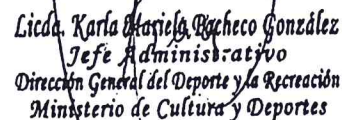 Licda. Karla Mariela Pacheco González
Jefe Administrativo
Dirección General del Deporte y la Recreación
Ministerio de Cultura y Deportes